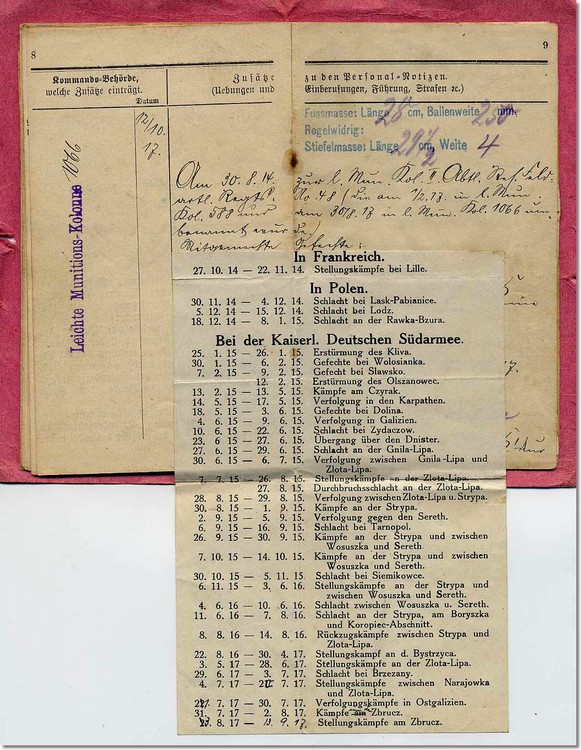 8
9
Kommando-Behörde,
welche Zusätze einträgt.
Datum
Zusätze
(Uebungen und
zu den Personal-Notizen.
Einberufungen, Führung, Strafen ꝛc.)
Fussmasse: Länge 28 cm, Ballenweite 250 mm.
Regelwidrig:
Stiefelmasse: Länge 29 1/2 cm, Weite 4
12/10.
17.
Leichte Munitions-Kolonne 1066
Am 30.8.14. zur l. Mun. Kol. II Abtl. Res. Feld-
artl. Regts. No 48 (die am 1/2.17. in l. Mun.
Kol. 588 und am 30/8.17 in l. Mun. Kol. 1066 um-
benannt wurde)
Mitgemachte Gefechte:
In Frankreich.
27. 10. 14 — 22. 11. 14. Stellungskämpfe bei Lille.
In Polen.
30. 11. 14 — 4. 12. 14. Schlacht bei Lask-Pabianice.
5. 12. 14 — 15. 12. 14. Schlacht bei Lodz.
18. 12. 14 — 8. 1. 15. Schlacht an der Rawka-Bzura.
Bei der Kaiserl. Deutschen Südarmee.
25. 1. 15 — 26. 1. 15. Erstürmung des Kliva.
30. 1. 15 — 6. 2. 15. Gefechte bei Wolosianka.
7. 2. 15 — 9. 2. 15. Gefecht bei Slawsko.
12. 2. 15. Erstürmung des Olszanowec.
13. 2. 15 — 13. 5. 15. Kämpfe am Czyrak.
14. 5. 15 — 17. 5. 15. Verfolgung in den Karpathen.
18. 5. 15 — 3. 6. 15. Gefechte bei Dolina.
4. 6. 15 — 9. 6. 15. Verfolgung in Galizien.
10. 6. 15 — 22. 6. 15. Schlacht bei Zydaczow.
23. 6 15 — 27. 6. 15. Übergang über den Dnister.
27. 6. 15 — 29. 6. 15. Schlacht an der Gnila-Lipa.
30. 6. 15 — 6. 7. 15. Verfolgung zwischen Gnila-Lipa und
Zlota-Lipa.
7. 7. 15 — 26. 8. 15. Stellungskämpfe an der Zlota-Lipa.
27. 8. 15. Durchbruchsschlacht an der Zlota-Lipa.
28. 8. 15 — 29. 8. 15. Verfolgung zwischen Zlota-Lipa u. Strypa.
30. 8. 15 — 1. 9. 15. Kämpfe an der Strypa.
2. 9. 15 — 5. 9. 15. Verfolgung gegen den Sereth.
6. 9. 15 — 16. 9. 15. Schlacht bei Tarnopol.
26. 9. 15 — 30. 9. 15. Kämpfe an der Strypa und zwischen
Wosuszka und Sereth
7. 10. 15 — 14. 10. 15. Kämpfe an der Strypa und zwischen
Wosuszka und Sereth.
30. 10. 15 — 5. 11. 15. Schlacht bei Siemikowce.
6. 11. 15 — 3. 6. 16. Stellungskämpfe an der Strypa und
zwischen Wosuszka und Sereth.
4. 6. 16 — 10. 6. 16. Schlacht zwischen Wosuszka u. Sereth.
11. 6. 16 — 7. 8. 16. Schlacht an der Strypa, am Boryszka
und Koropiec-Abschnitt.
8. 8. 16 — 14. 8. 16. Rückzugskämpfe zwischen Strypa und
Zlota-Lipa.
22. 8. 16 — 30. 4. 17. Stellungskampf an d. Bystrzyca.
3. 5. 17 — 28. 6. 17. Stellungskämpfe an der Zlota-Lipa.
29. 6. 17 — 3. 7. 17. Schlacht bei Brzezany.
4. 7. 17 — 7. 17. Stellungskämpfe zwischen Narajowka
und Zlota-Lipa.
7. 17 — 30. 7. 17. Verfolgungskämpfe in Ostgalizien.
31. 7. 17 — 2. 8. 17. Kämpfe am Zbrucz.
8. 17 — 9. 17. Stellungskämpfe am Zbrucz.